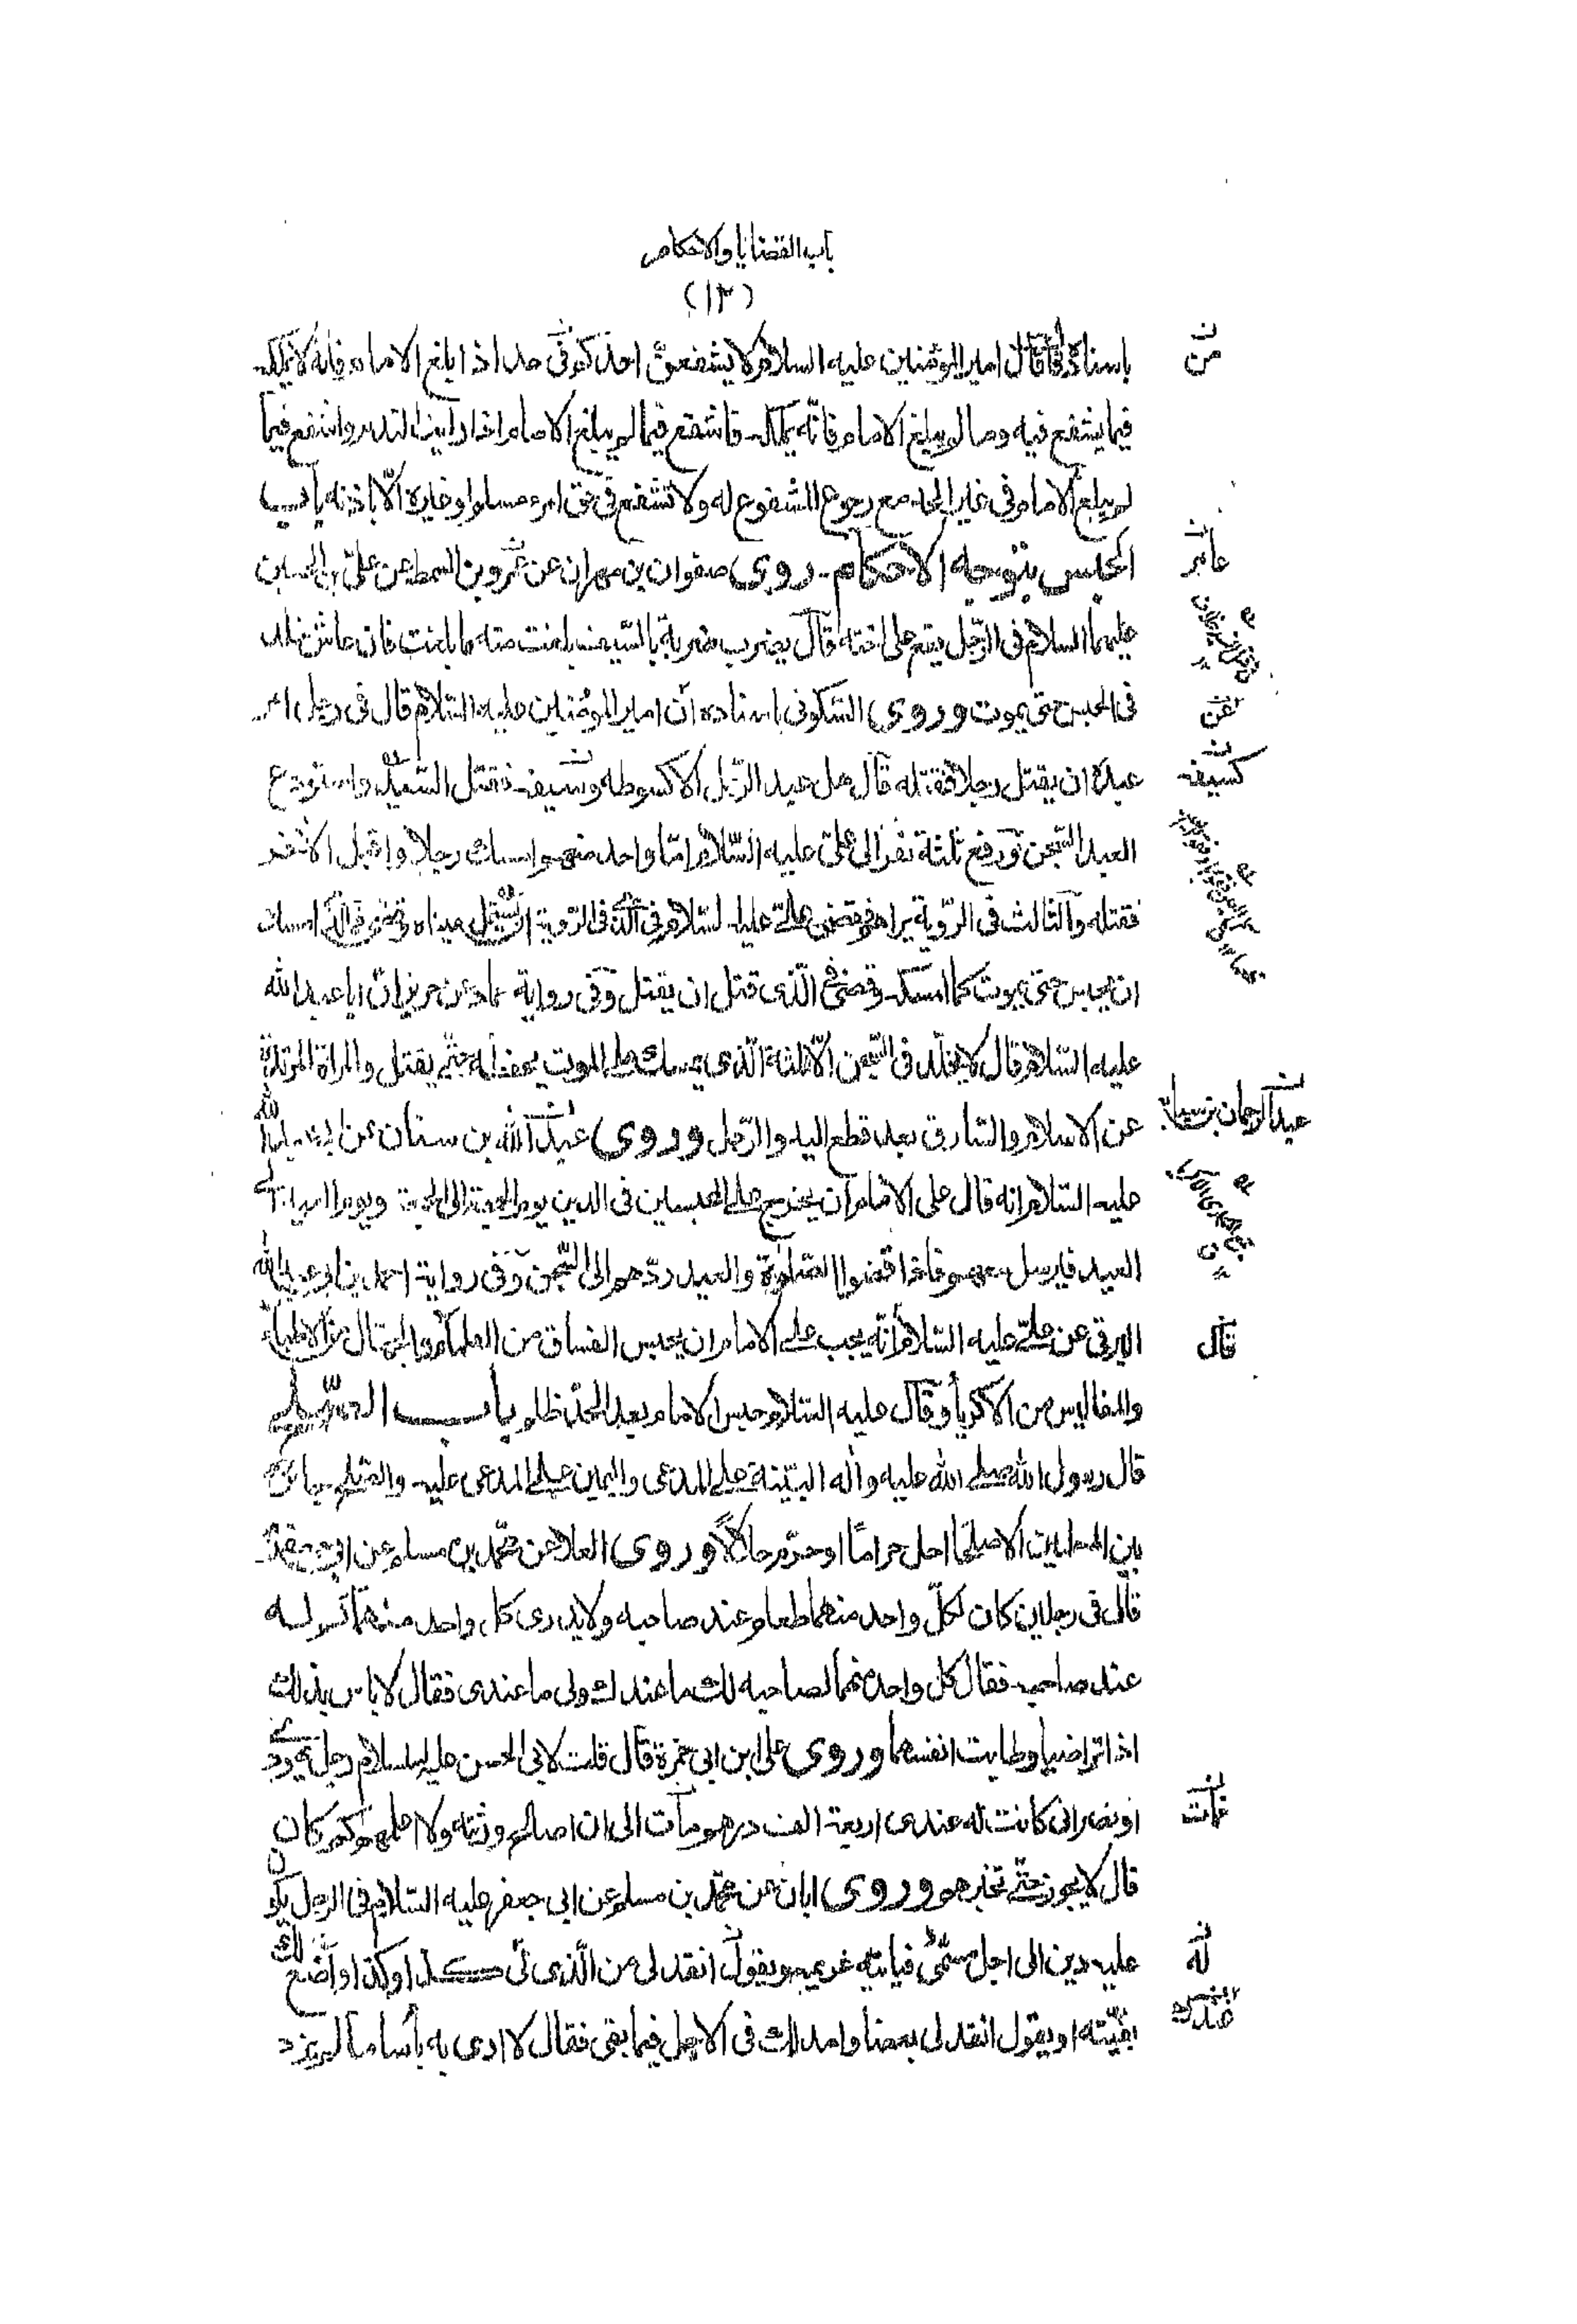 باب القضايا والاحكام
(١٣)
باسناده قال قال امير المؤمنين عليه السلام لا يشفعنّ احدكم فى حد اذا بلغ الامام فانه لا يملكه
فيما يشفع فيه وما لم يبلغ الامام فانّه يملكه فاشفع فيما لم يبلغ الامام اذا رايت الندم واشفع فيما
لم يبلغ الامام فى غير الحد مع رجوع المشفوع له ولا تشفع فى حق امرء مسلم او غيره الّا باذنه باب
الحبس بتوجه الاحكام روى صفوان بن مهران عن عمرو بن السمط عن علىّ بن الحسين
عليهما السلام فى الرّجل يقع على اخته قال يضرب ضربة بالسّيف بلغت منه ما بلغت فان عاش خلد
فى الحبس حتى يموت وروى السّكونى باسناده انّ امير المؤمنين عليه السّلام قال فى رجل امر
عبده ان يقتل رجلا فقتله قال هل عبد الرّجل الا كسوطه وسيفه فقتل السّيّد واستودع
العبد السّجن ورفع ثلثة نفر الى علىّ عليه السّلام امّا واحد منهم امسك رجلا واقبل الاخر
فقتله والثالث فى الرّوية يراهم فقضى علىّ عليه السّلام فى الّذى فى الرّوية ان تسمل عيناه وقضى فى الّذى امسك
ان يحبس حتى يموت كما امسكه وقضى فى الّذى قتل ان يقتل وفى رواية حماد عن حريز انّ ابا عبد الله
عليه السّلام قال لا يخلّد فى السّجن الّا ثلثة الّذى يمسك على الموت يحفظه حتّى يقتل والمراة المرتدة
عن الاسلام والسّارق بعد قطع اليد والرّجل وروى عبد الله بن سنان عن ابى عبد الله
عليه السّلام انه قال على الامام ان يخرج المحبسين فى الدين يوم الجمعة الى الجمعة ويوم العيد الى
العيد فيرسل معهم فاذا قضوا الصّلوة والعيد ردّهم الى السّجن وفى رواية احمد بن ابى عبد الله
البرقى عن علىّ عليه السّلام انّه يجب على الامام ان يحبس الفساق من العلماء والجهّال من الاطباء
والمفاليس من الاكرياء وقال عليه السّلام حبس الامام بعد الحدّ ظلم باب الصّلح
قال رسول الله صلى الله عليه واله البيّنة على المدعى واليمين على المدعى عليه والصّلح جائز
بين المسلمين الا صلحًا احل حرامًا او حرّم حلالًا وروى العلا عن محمّد بن مسلم عن ابى جعفرؑ
قال فى رجلين كان لكلّ واحد منهما طعام عند صاحبه ولا يدرى كل واحد منهما كم له
عند صاحبه فقال كل واحد منهما لصاحبه لك ما عندك ولى ما عندى فقال لا باس بذلك
اذا تراضيا وطابت انفسهما وروى على ابن ابى حمزة قال قلت لابى الحسن عليه السلام رجل يهودى
او نصرانى كانت له عندى اربعة الف درهم مات الى ان اصالح ورثته ولا اعلمهم كم كان
قال لا يجوز حتّى تخبرهم وروى ابان عن محمّد بن مسلم عن ابى جعفر عليه السّلام فى الرجل يكون
عليه دين الى اجل مسمّى فياتيه غريمه ويقول انقد لى من الّذى لى كذا وكذا واضع لك
بقيّته او يقول انقد لى بعضا وامد لك فى الاجل فيما بقى فقال لا ارى به بأسا ما لم يزد
من
عامر
عن
كسيفه
عبد الرحمان بن سيابة
قال
فمات
له
عندك